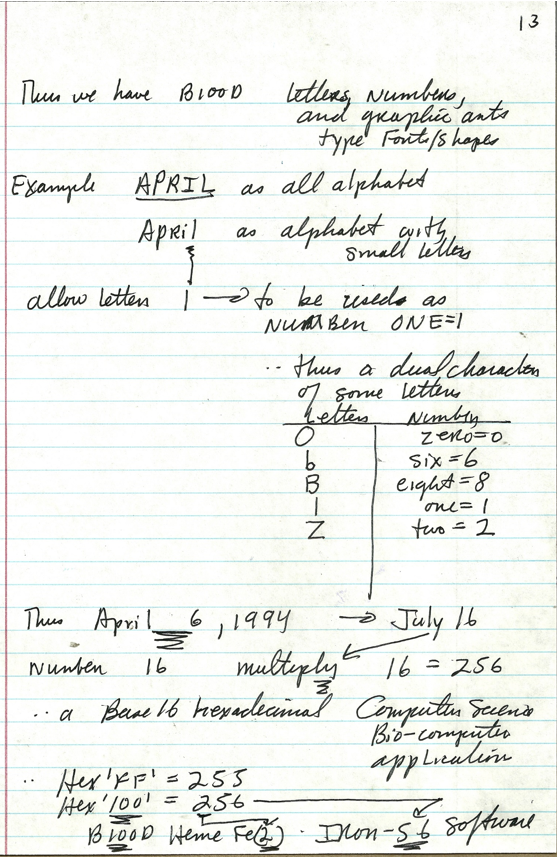 13
Thus we have B100D letters, numbers,
and graphic arts
type Fonts/Shapes
Example APRIL as all alphabet
April as alphabet with
small letters
allow letters l → to be used as
NUMBER ONE=1
∴ thus a dual character
of some letters
Letters Number
O zero=0
b six=6
B eight=8
l one=1
Z two=2
Thus April 6, 1994 → July 16
Number 16 multiply 16 = 256
∴ a Base 16 hexadecimal Computer Science
Bio-computer
application
∴ Hex 'FF' = 255
Hex '100' = 256
B100D Heme Fe(2) · Iron-56 software